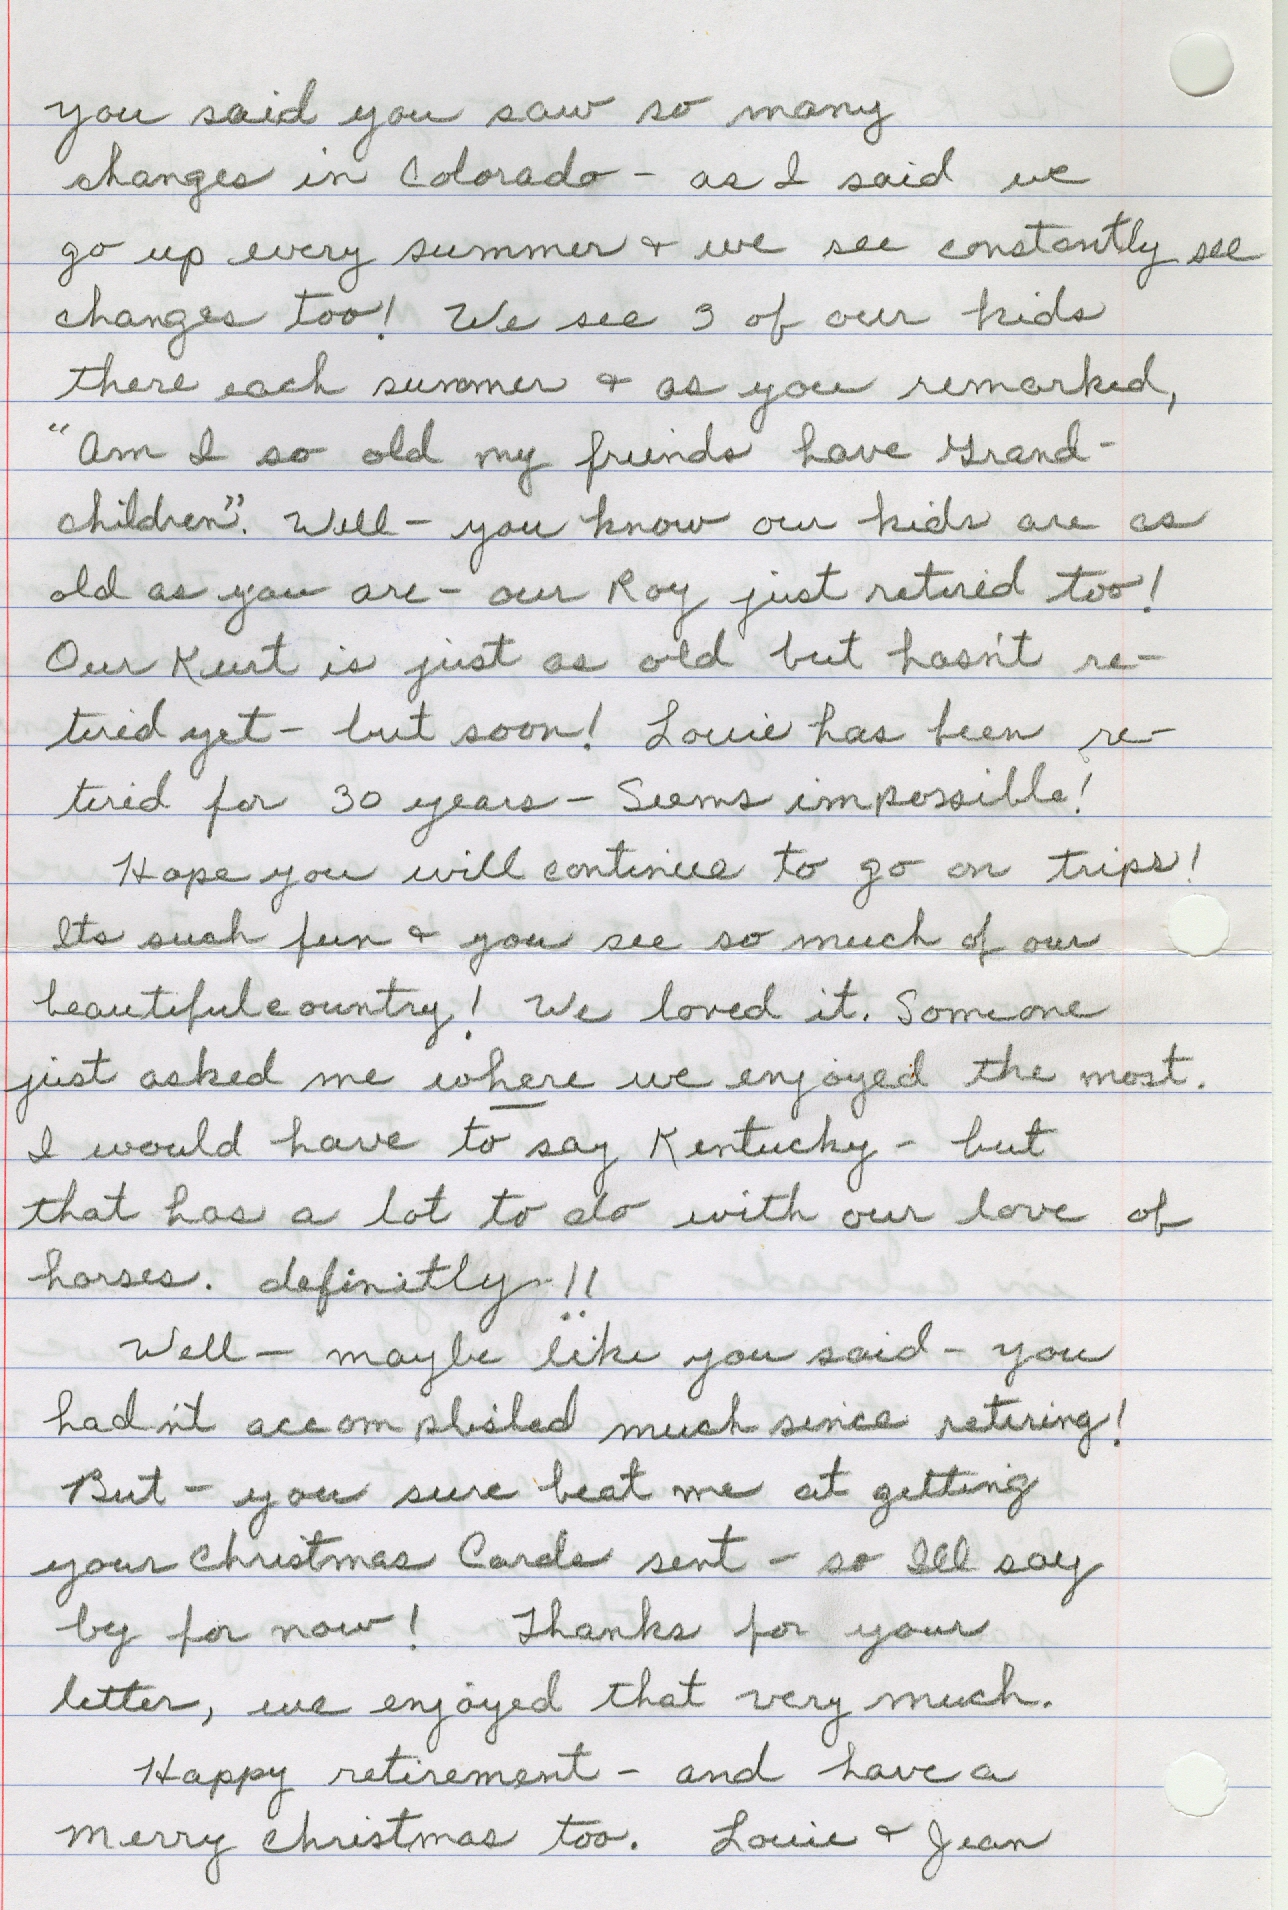 you said you saw so many
changes in Colorado - as I said we
go up every summer & we see constantly see
changes too! We see 3 of our kids
there each summer & as you remarked,
"Am I so old my friends have Grand-
children". Well - you know our kids are as
old as you are - our Roy just retired too!
Our Kurt is just as old but hasn't re-
tired yet - but soon! Louie has been re-
tired for 30 years - Seems impossible!
Hope you will continue to go on trips!
Its such fun & you see so much of our
beautiful country! We loved it. Someone
just asked me where we enjoyed the most.
I would have to say Kentucky - but
that has a lot to do with our love of
horses. definitly - !!
Well - maybe like you said - you
hadn't accomplished much since retiring!
But - you sure beat me at getting
your Christmas Cards sent - so Ill say
by for now! Thanks for your
letter, we enjoyed that very much.
Happy retirement - and have a
merry christmas too. Louie & Jean